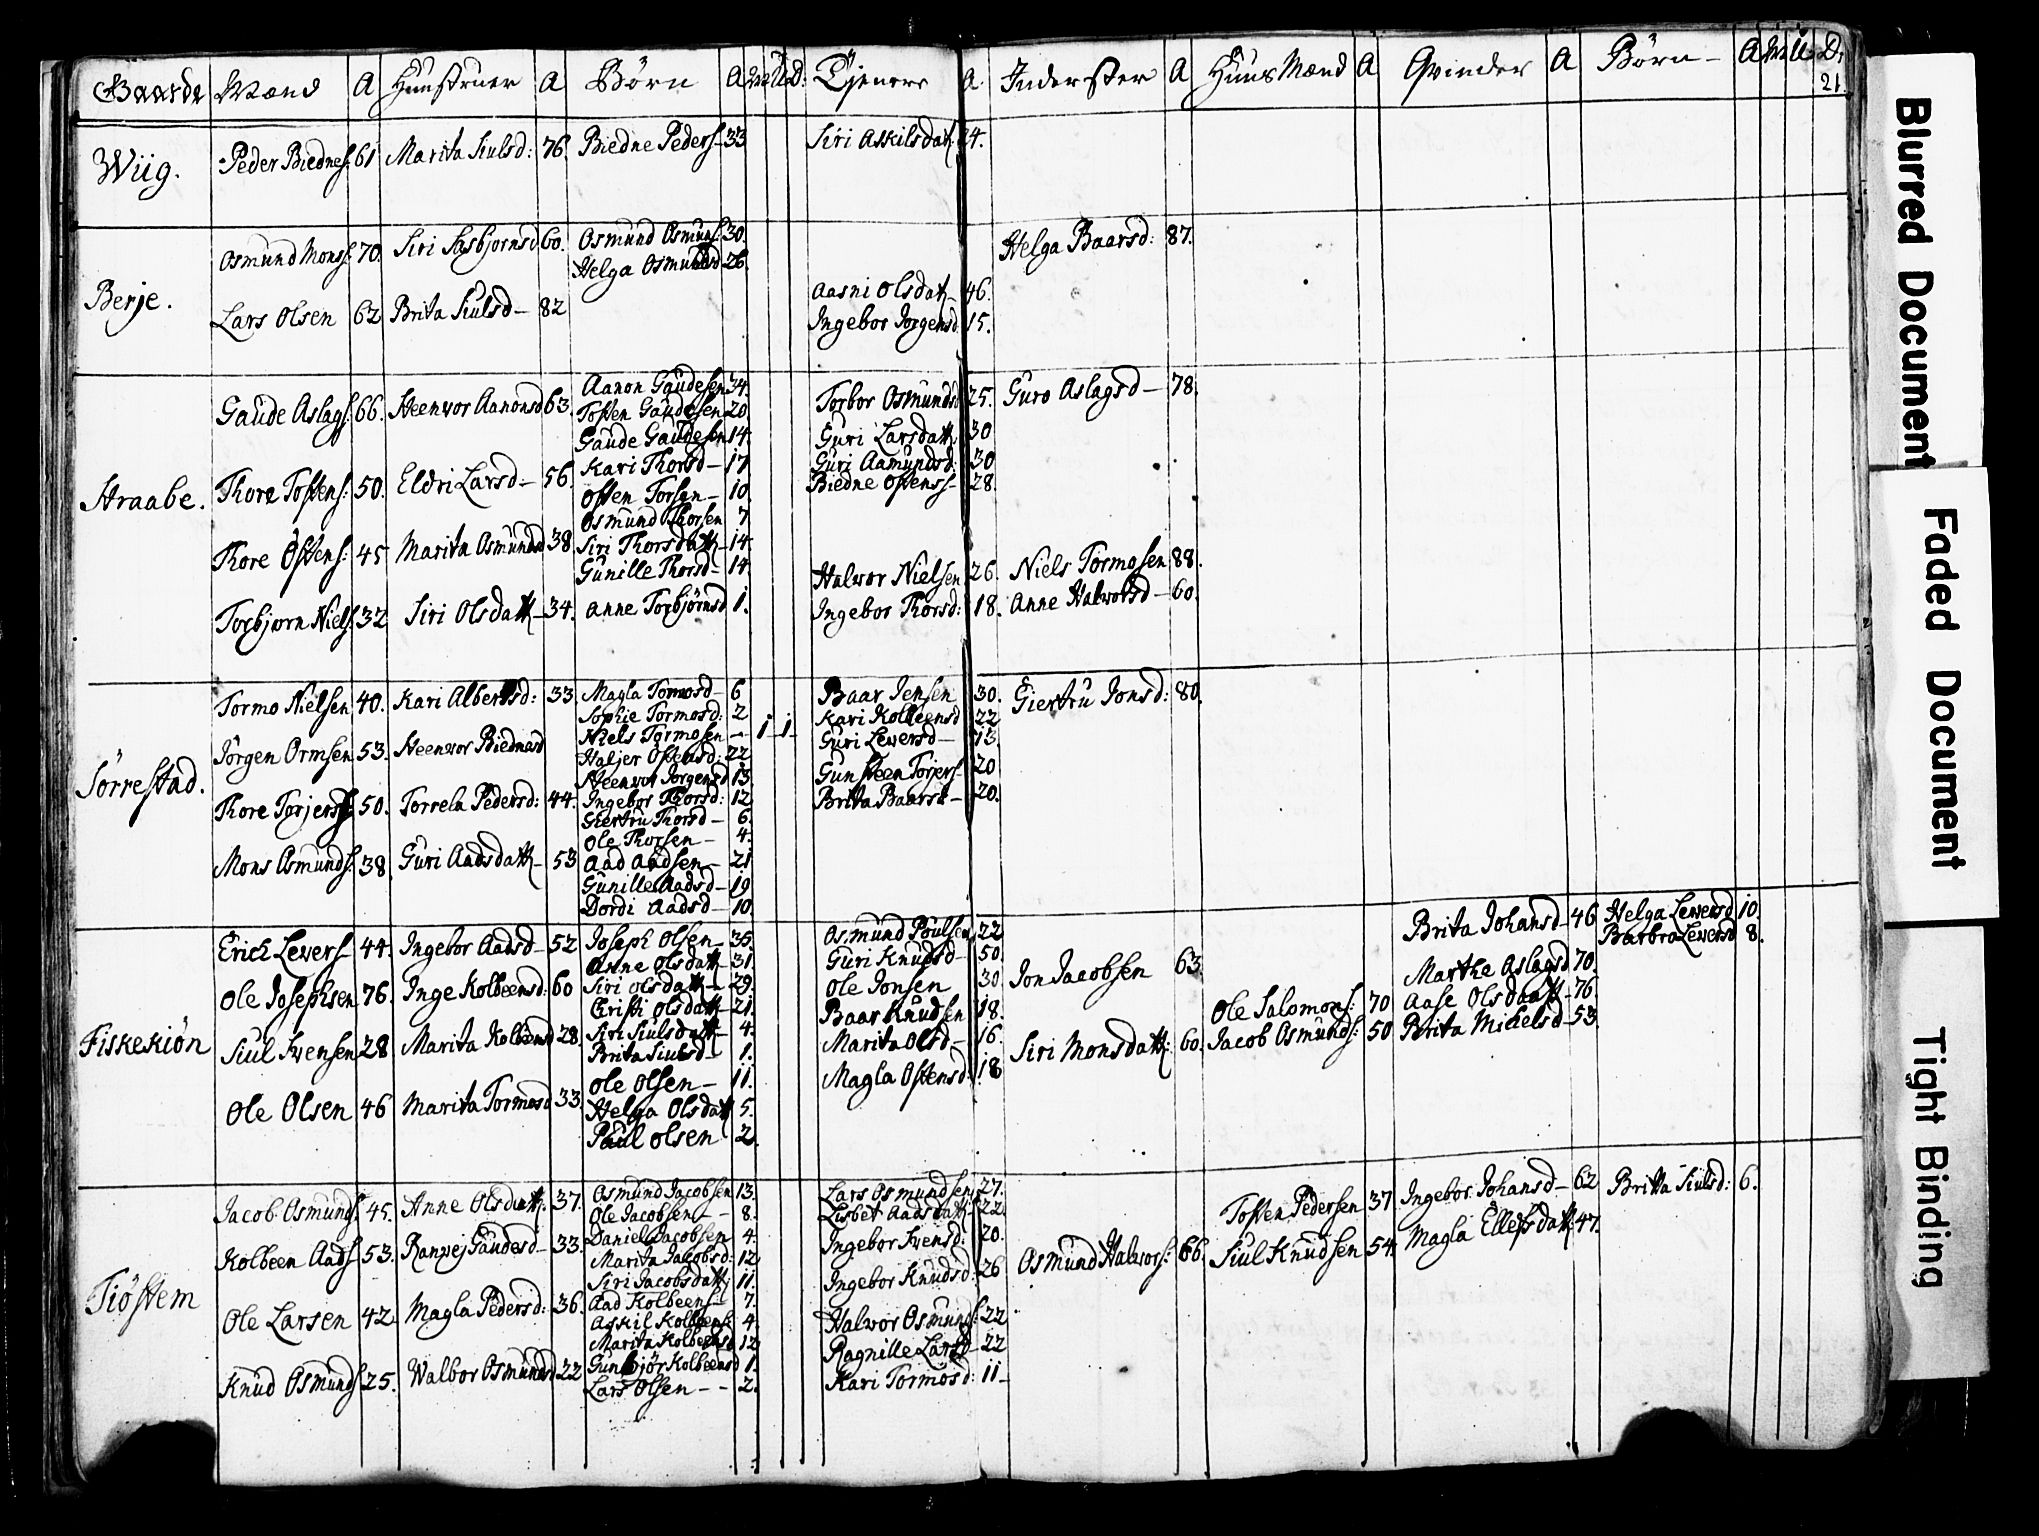 Gaarde Mænd A Huustruer A Børn A M U D: Tjenere A Inderster A Huus Mænd A Qvinder A Børn A M U D:
21
Wiig.
Peder Biednes: 61 Marita Siulsd: 76. Biedne Peders– 33 Siri Askilsdatt. 24.
Berje.
Osmund Monss: 70. Siri Sasbjornsd 60. Osmund Osmuns: 30. Helga Baarsd: 87.
Helga Osmundsd 26.
Aasni Olsdatt– 46.
Lars Olsen 62 Brita Siulsd– 82
Ingebor Jorgensd 15.
Straabe.
Aanon Gaudesen 34.
Gaude Aslags: 66. Steenvor Aanonsd 63. Tosten Gaudesen 20. Torbor Osmundsd 25. Guro Aslagsd– 78.
Gaude Gaudesen 14. Guri Larsdatt 30
Kari Thorsd– 17 Guri Aamundsd: 30
Thore Tostens: 50. Eldri Larsd– 56. Osten Torsen– 10. Biedne Ostenss– 28.
Osmund Thorsen 7
Thore Östens: 45 Marita Osmundsd 38. Siri Thorsdatt– 14.
Gunille Thorsd– 14. Halvor Nielsen 26. Niels Tormosen 88.
Torbjørn Niels: 32 Siri Olsdatt– 34. Anne Torbjørnsd 1. Ingebor Thorsd: 18. Anne Halvorsd– 60.
Sörrestad.
Tormo Nielsen 40. Kari Albertsd: 33 Magla Tormosd– 6 Baar Jensen 30. Giertru Jonsd: 80.
Sophie Tormosd: 2 Kari Kolbeensd 22
Niels Tormosen –– 1 1 Guri Leversd– 13.
Jörgen Ormsen 53. Steenvor Biednasd Haljer Ostensd: 22 Gunsteen Torjers– 20
Steenvor Jorgensd 13.
Thore Torjerss: 50. Torrela Pedersd: 44. Ingebor Thorsd: 12 Brita Baarsd– 20.
Giertru Thorsd– 6.
Ole Thorsen– 4.
Mons Osmunds: 38 Guri Aadsdatt– 53 Aad Aadsen– 21
Gunille Aadsd– 19
Dordi Aadsd– 10.
Fiskekiön
Erich Levers– 44. Ingebor Aadsd– 52 Joseph Olsen– 35. Osmund Poulsen 22 Brita Johansd– 46 Helga Leversd 10.
Anne Olsdatt– 31 Guri Knudsd– 50. Barbra Leversd 8.
Ole Josephsen 76. Inge Kolbeensd: 60 Siri Olsdatt– 29. Ole Jonsen 30 Jon Jacobsen 63 Marthe Aslagsd 70.
Cristi Olsdatt– 21. Baar Knudsen 18. Ole Salomons: 70 Aase Olsdatt– 76.
Siul Svensen 28 Marita Kolbensd 28. Siri Siulsdatt– 4. Marita Olsd– 16. Siri Monsdatt: 60. Jacob Osmunds: 50 Brita Michelsd– 53.
Brita Siulsd– 1. Magla Ostensd: 18
Ole Olsen 46 Marita Tormosd 33. Ole Olsen– 11.
Helga Olsdatt 5.
Paul Olsen 2.
Tiöstem
Jacob Osmunds: 45. Anne Olsdatt: 37. Osmund Jacobsen 13. Lars Osmundsen 27. Tosten Pedersen 37 Ingebor Johansd– 62 Britta Siulsd: 6.
Ole Jacobsen–– 8. Lisbet Aadsdatt: 22
Kolbeen Aads 53. Ranvej Gaudesd– 33. Daniel Jacobsen 4. Ingebor Svensd: 20. Osmund Halvors: 66. Siul Knudsen 54. Magla Ellefsdatt 47.
Marita Jacobsd: 12
Siri Jacobsdatt: 11. Ingebor Knudsd: 26
Ole Larsen 42 Magla Pedersd: 36. Aad Kolbeens– 7.
Askil Kolbeens: 4. Halvor Osmunds: 22
Marita Kolbeensd 12 Ragnille Larsd– 22
Knud Osmunds 25. Walbor Osmundsd 22 Gunbjör Kolbeensd 1. Kari Tormosd: 11–
Lars Olsen–– 2.
Blurred Document
Faded Document
Tight Binding